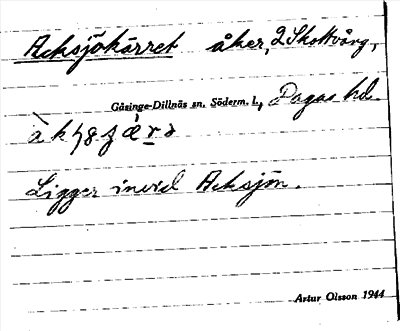 Acksjökärret åker, 2 Skottvång,
Gåsinge-Dillnäs sn, Söderm. l., Dagas hd.
Ligger invid Acksjön.
Artur Olsson 1944